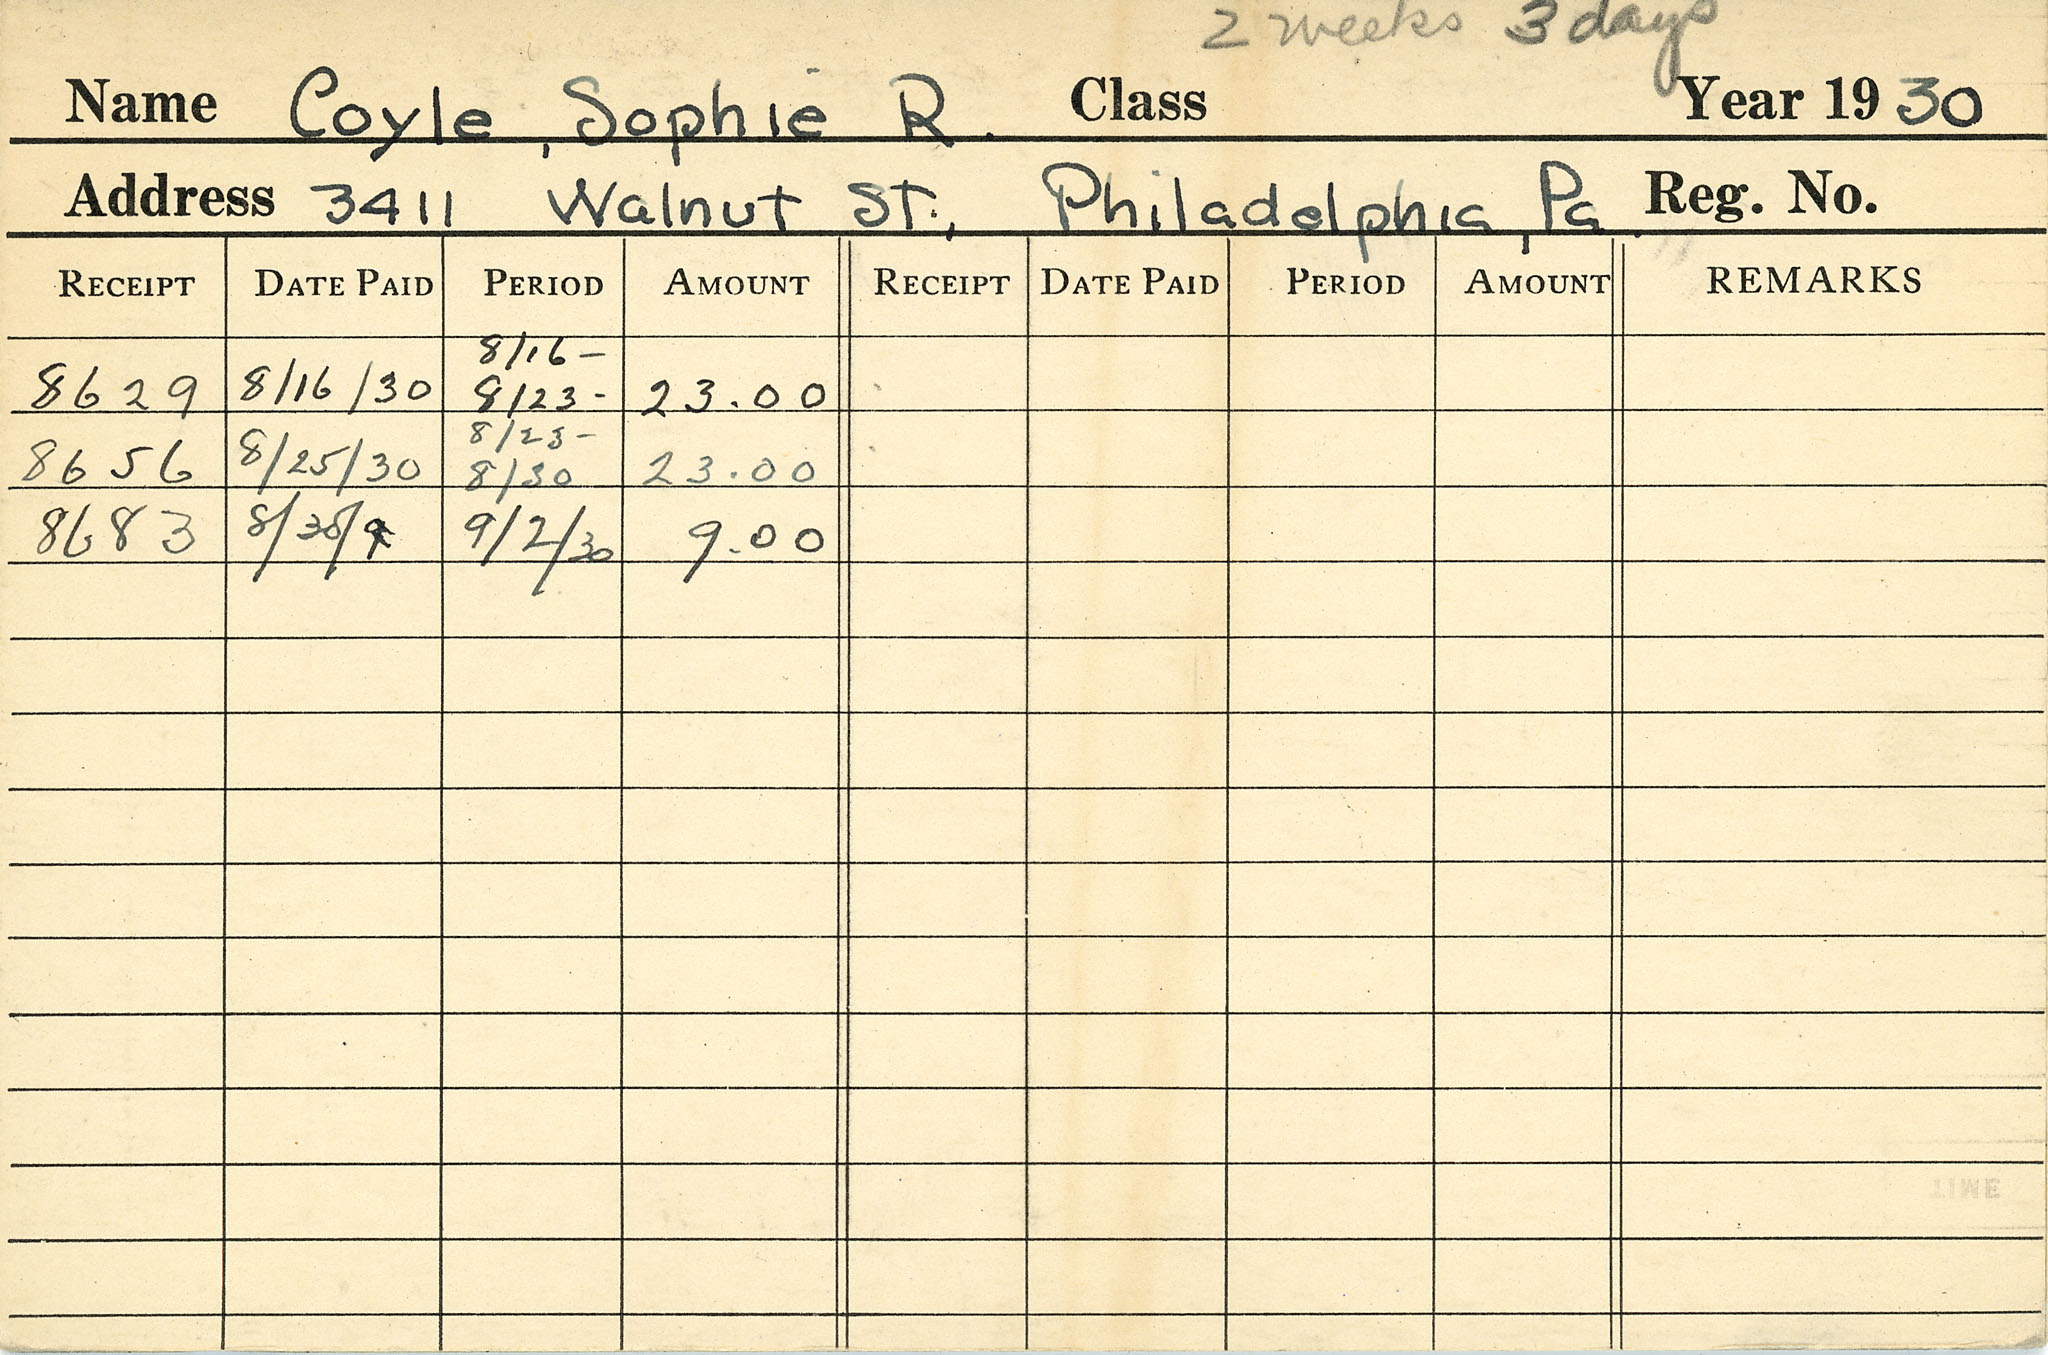 2 weeks 3 days
Name Coyle, Sophie R. Class Year 19 30
Address 3411 Walnut St., Philadelphia, Pa. Reg. No.
RECEIPT DATE PAID PERIOD AMOUNT RECEIPT DATE PAID PERIOD AMOUNT REMARKS
8/16 –
8629 8/16/30 8/23 - 23.00
8/23 –
8656 8/25/30 8/30 23.00
8683 8/30/ 9/2/30 9.00
TIME